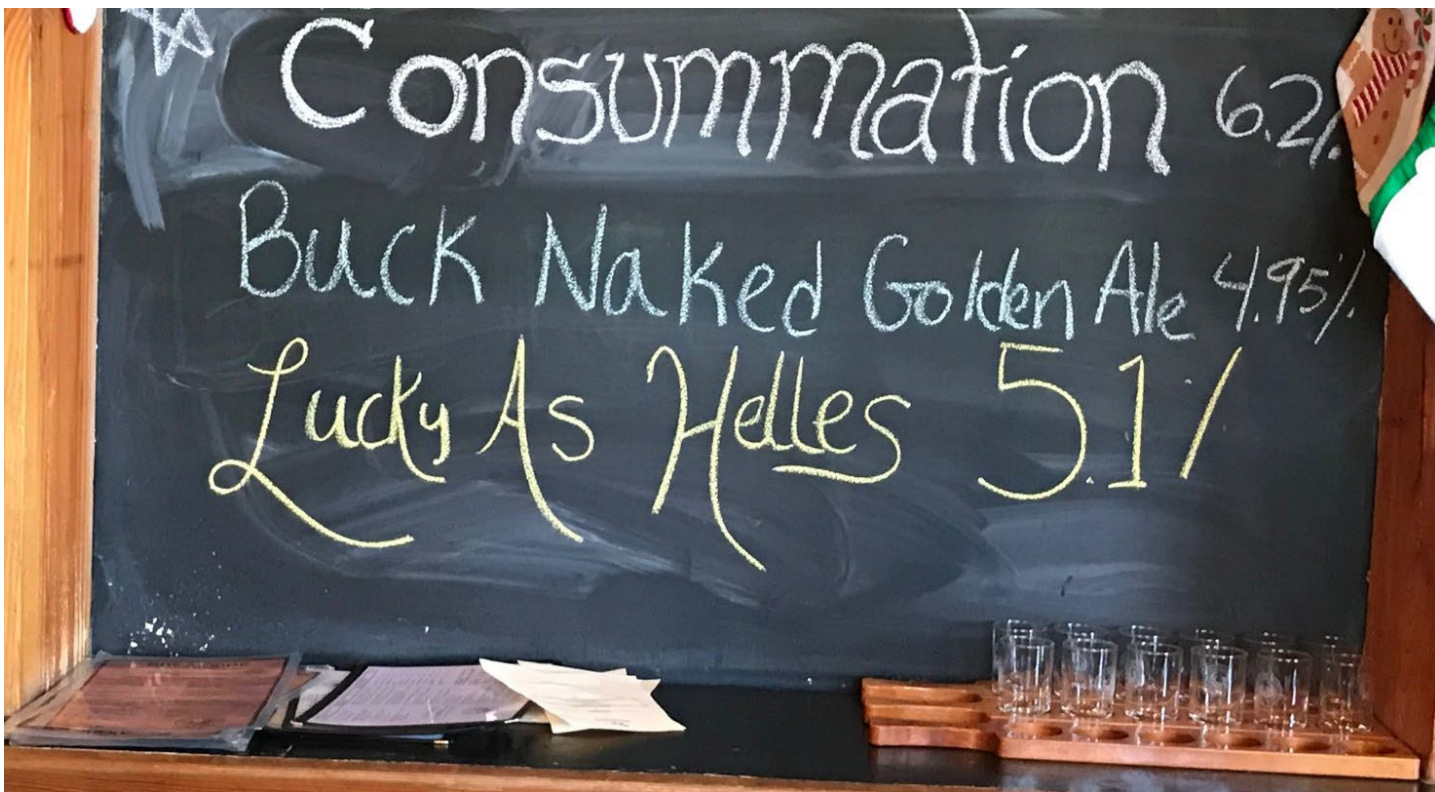 Consummation 6.2%
Buck Naked Golden Ale 4.95%
Lucky As Helles 5.1%